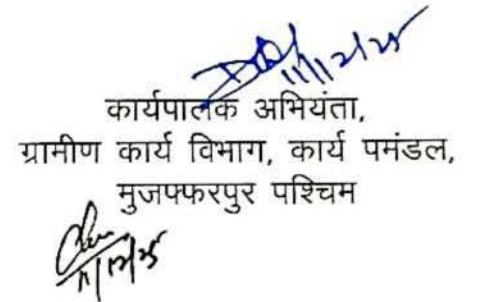 11/12/25
कार्यपालक अभियंता,
ग्रामीण कार्य विभाग, कार्य पमंडल,
मुजफ्फरपुर पश्चिम
11/12/25